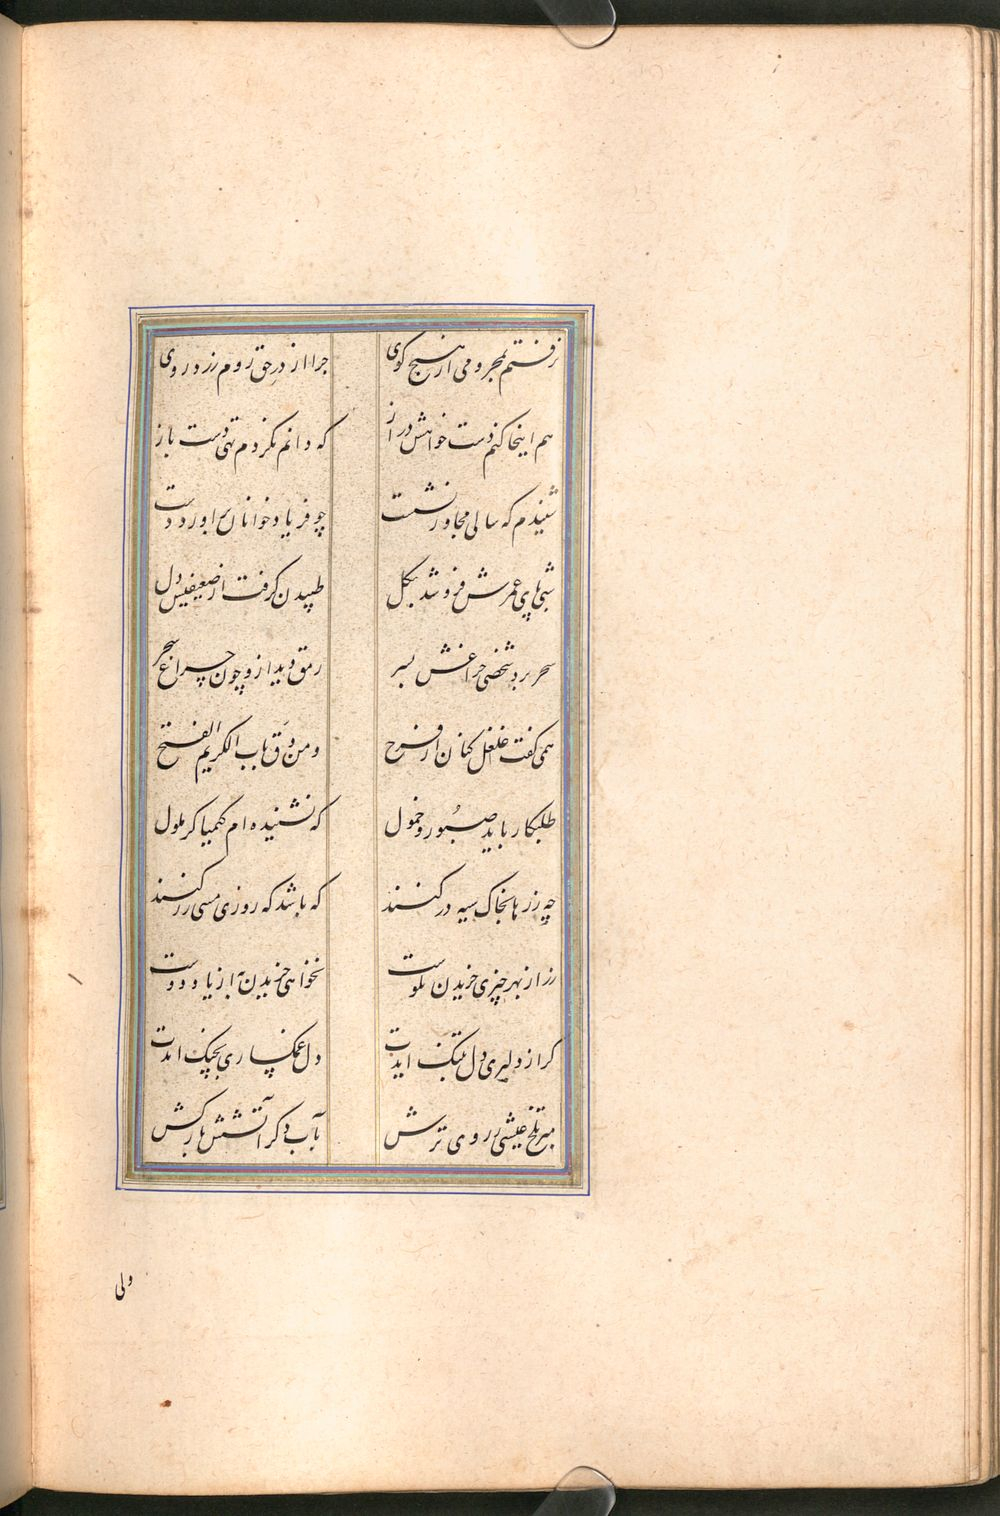 نرفتم بمحرومی از هیچ کوی چرا از در حق روم زرد روی
هم اینجا کنم دست خواهش دراز که دانم نکردم تهی دست باز
شنیدم که سالی مجاور نشست چو فریاد خوانان براورد دست
شبی پای عمرش فرو شد بکل طپیدن کرفت از ضعیفیش دل
سحر برد شخصی چراغش بسر رمق دید ازو چون چراغ سحر
همی کفت غلغل کنان از فرح و من دق باب الکریم انفتح
طلبکار باید صبور و حمول که نشنیده ام کیمیاکر ملول
چه زرها بخاک سیه در کنند که باشد که روزی مسی زر کنند
زر از بهر چیزی خریدن نکوست نخواهی خریدن به از یاد دوست
کر از دلبری دل بتنک ایدت دل غمکساری بچنک ایدت
مبر تلخ عیشی ز روی ترش بآب دکر آتشش باز کش
ولی